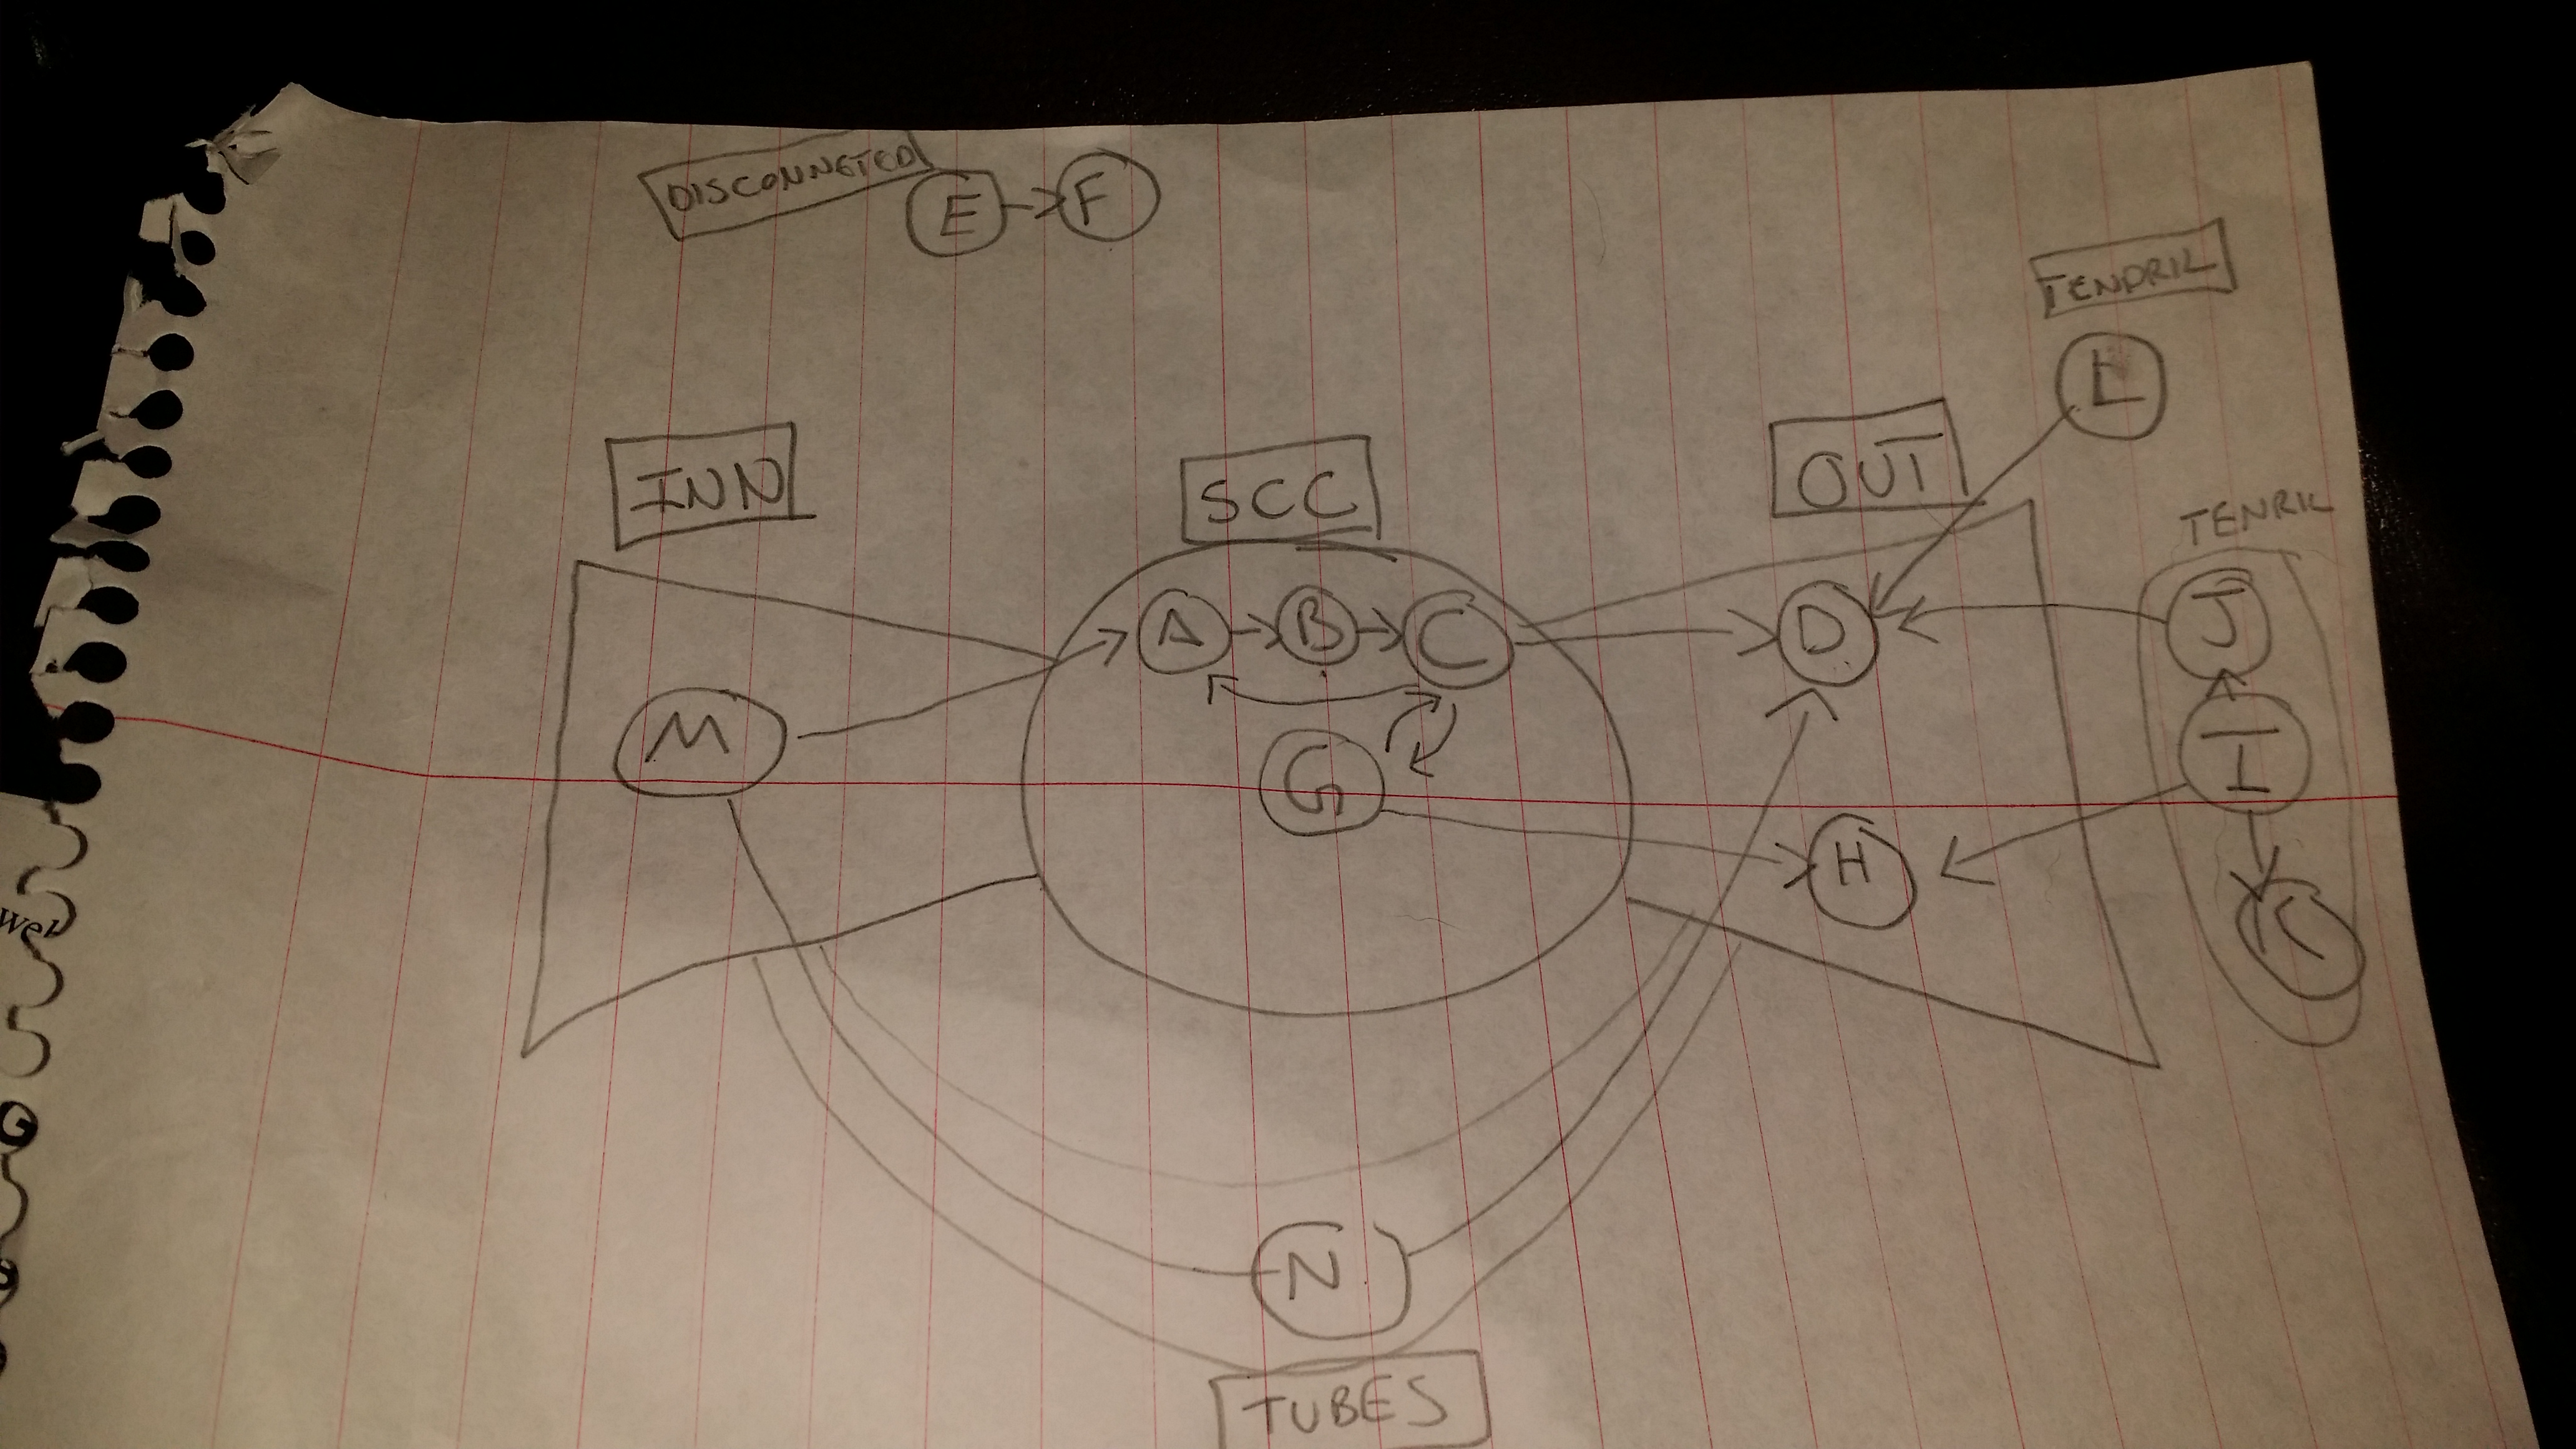 DISCONNETED
E
F
TENDRIL
L
INN
SCC
OUT
TENRIL
A
B
C
D
J
M
G
I
H
K
wer
G
N
TUBES